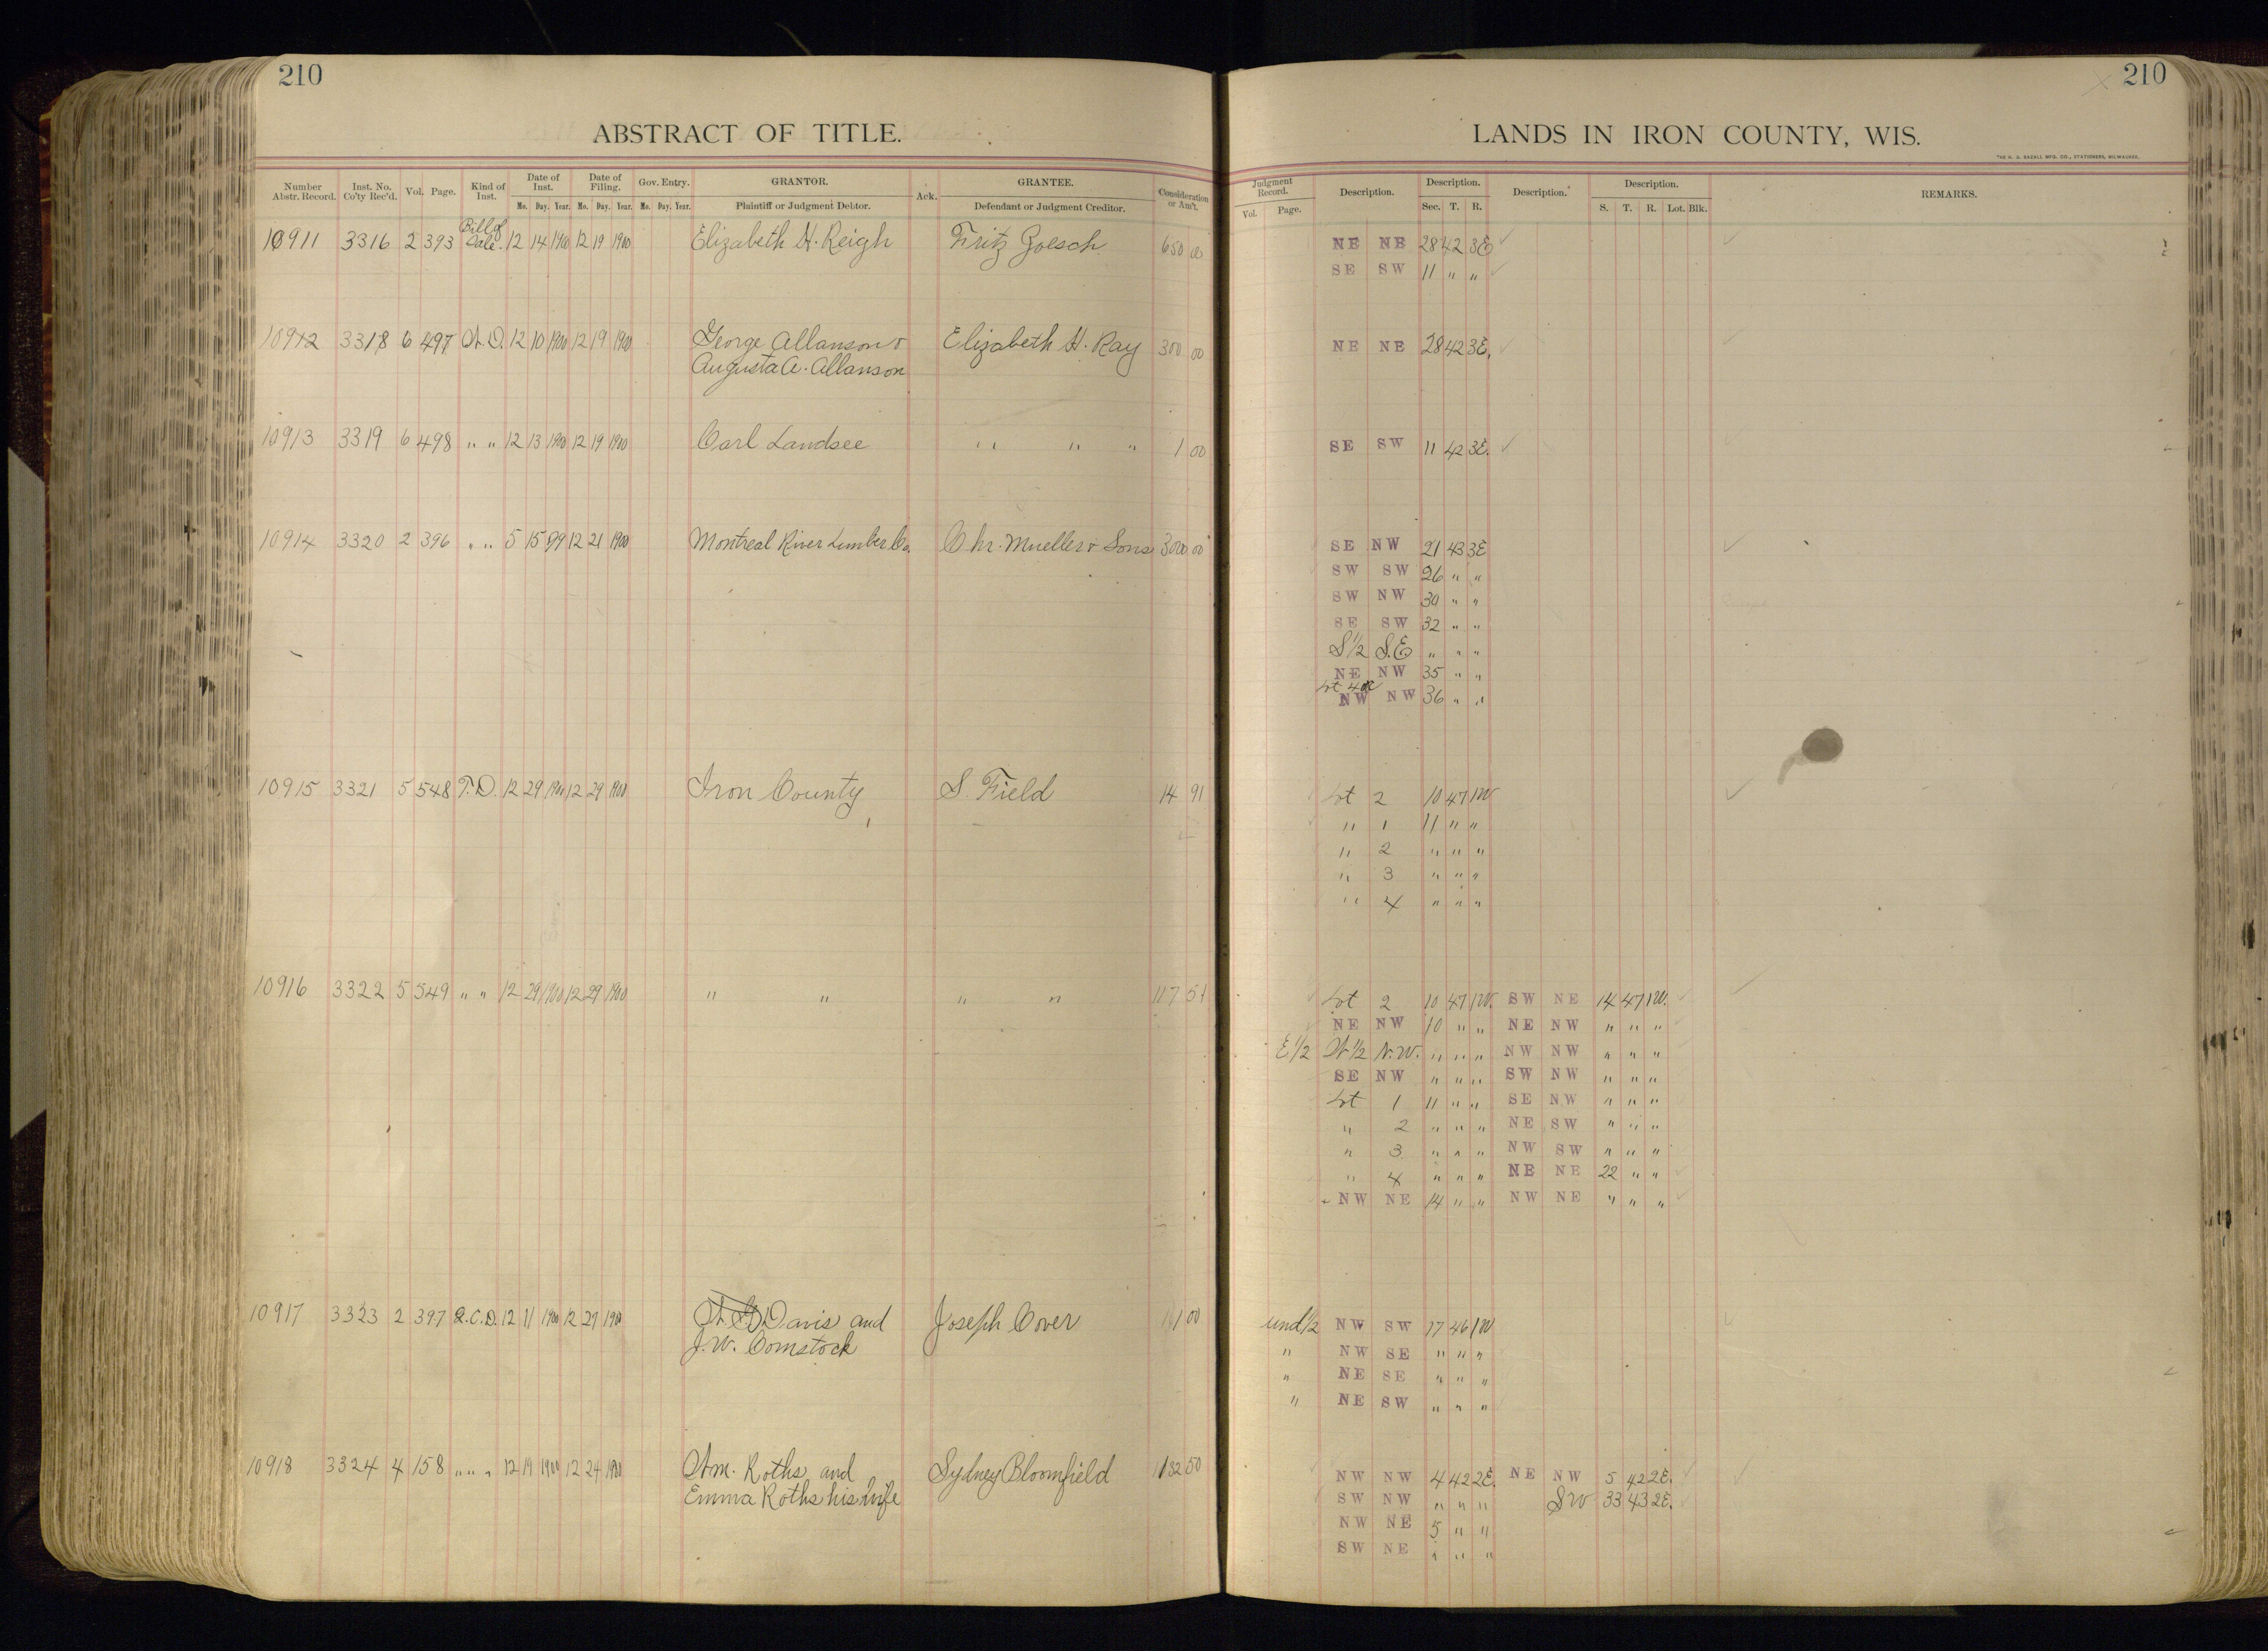 210
ABSTRACT OF TITLE.
Number Abstr. Record. Inst. No. Co'ty Rec'd. Vol. Page. Kind of Inst. Date of Inst. Mo. Day. Year. Date of Filing. Mo. Day. Year. Gov. Entry. Mo. Day. Year. GRANTOR. Plaintiff or Judgment Debtor. Ack. GRANTEE. Defendant or Judgment Creditor. Consideration or Am't.
10911 3316 2 393 Bill of Sale. 12 14 1900 12 19 1900 Elizabeth H. Reigh Fritz Goesch 650 00
10912 3318 6 497 W.D. 12 10 1900 12 19 1900 George Allanson & Elizabeth H. Ray 300 00
Augusta A. Allanson
10913 3319 6 498 " " 12 13 1900 12 19 1900 Carl Landsee " " " 1 00
10914 3320 2 396 " " 5 15 99 12 21 1900 Montreal River Lumber Co. Chr. Mueller & Sons 3000 00
10915 3321 5 548 T.D. 12 29 1900 12 29 1900 Iron County S. Field 14 91
10916 3322 5 549 " " 12 29 1900 12 29 1900 " " " " 117 51
10917 3323 2 397 Q.C.D. 12 11 1900 12 29 1900 Davis and Joseph Cover 1 00
J.W. Comstock
10918 3324 4 158 " " " 12 19 1900 12 24 1900 Wm. Roths and Sydney Bloomfield 132 50
Emma Roths his wife
210
LANDS IN IRON COUNTY, WIS.
THE H. G. RAZALL MFG. CO., STATIONERS, MILWAUKEE.
Judgment Record. Vol. Page. Description. Description. Sec. T. R. Description. Description. S. T. R. Lot. Blk. REMARKS.
NE NE 28 42 3E
SE SW 11 " "
NE NE 28 42 3E.
SE SW 11 42 3E.
SE NW 21 43 3E
SW SW 26 " "
SW NW 30 " "
SE SW 32 " "
S 1/2 S.E " " "
NE NW 35 " "
Lot 4 or
NW NW 36 " "
Lot 2 10 47 1W
" 1 11 " "
" 2 " " "
" 3 " " "
" 4 " " "
Lot 2 10 47 1W. SW NE 14 47 1W.
NE NW 10 " " NE NW " " "
E 1/2 W 1/2 N.W. " " " NW NW " " "
SE NW " " " SW NW " " "
Lot 1 11 " " SE NW " " "
" 2 " " " NE SW " " "
" 3 " " " NW SW " " "
" 4 " " " NE NE 22 " "
NW NE 14 " " NW NE " " "
und 1/2 NW SW 17 46 1W
" NW SE " " "
" NE SE " " "
" NE SW " " "
NW NW 4 42 2E. NE NW 5 42 2E.
SW NW " " " SW 33 43 2E.
NW NE 5 " "
SW NE " " "